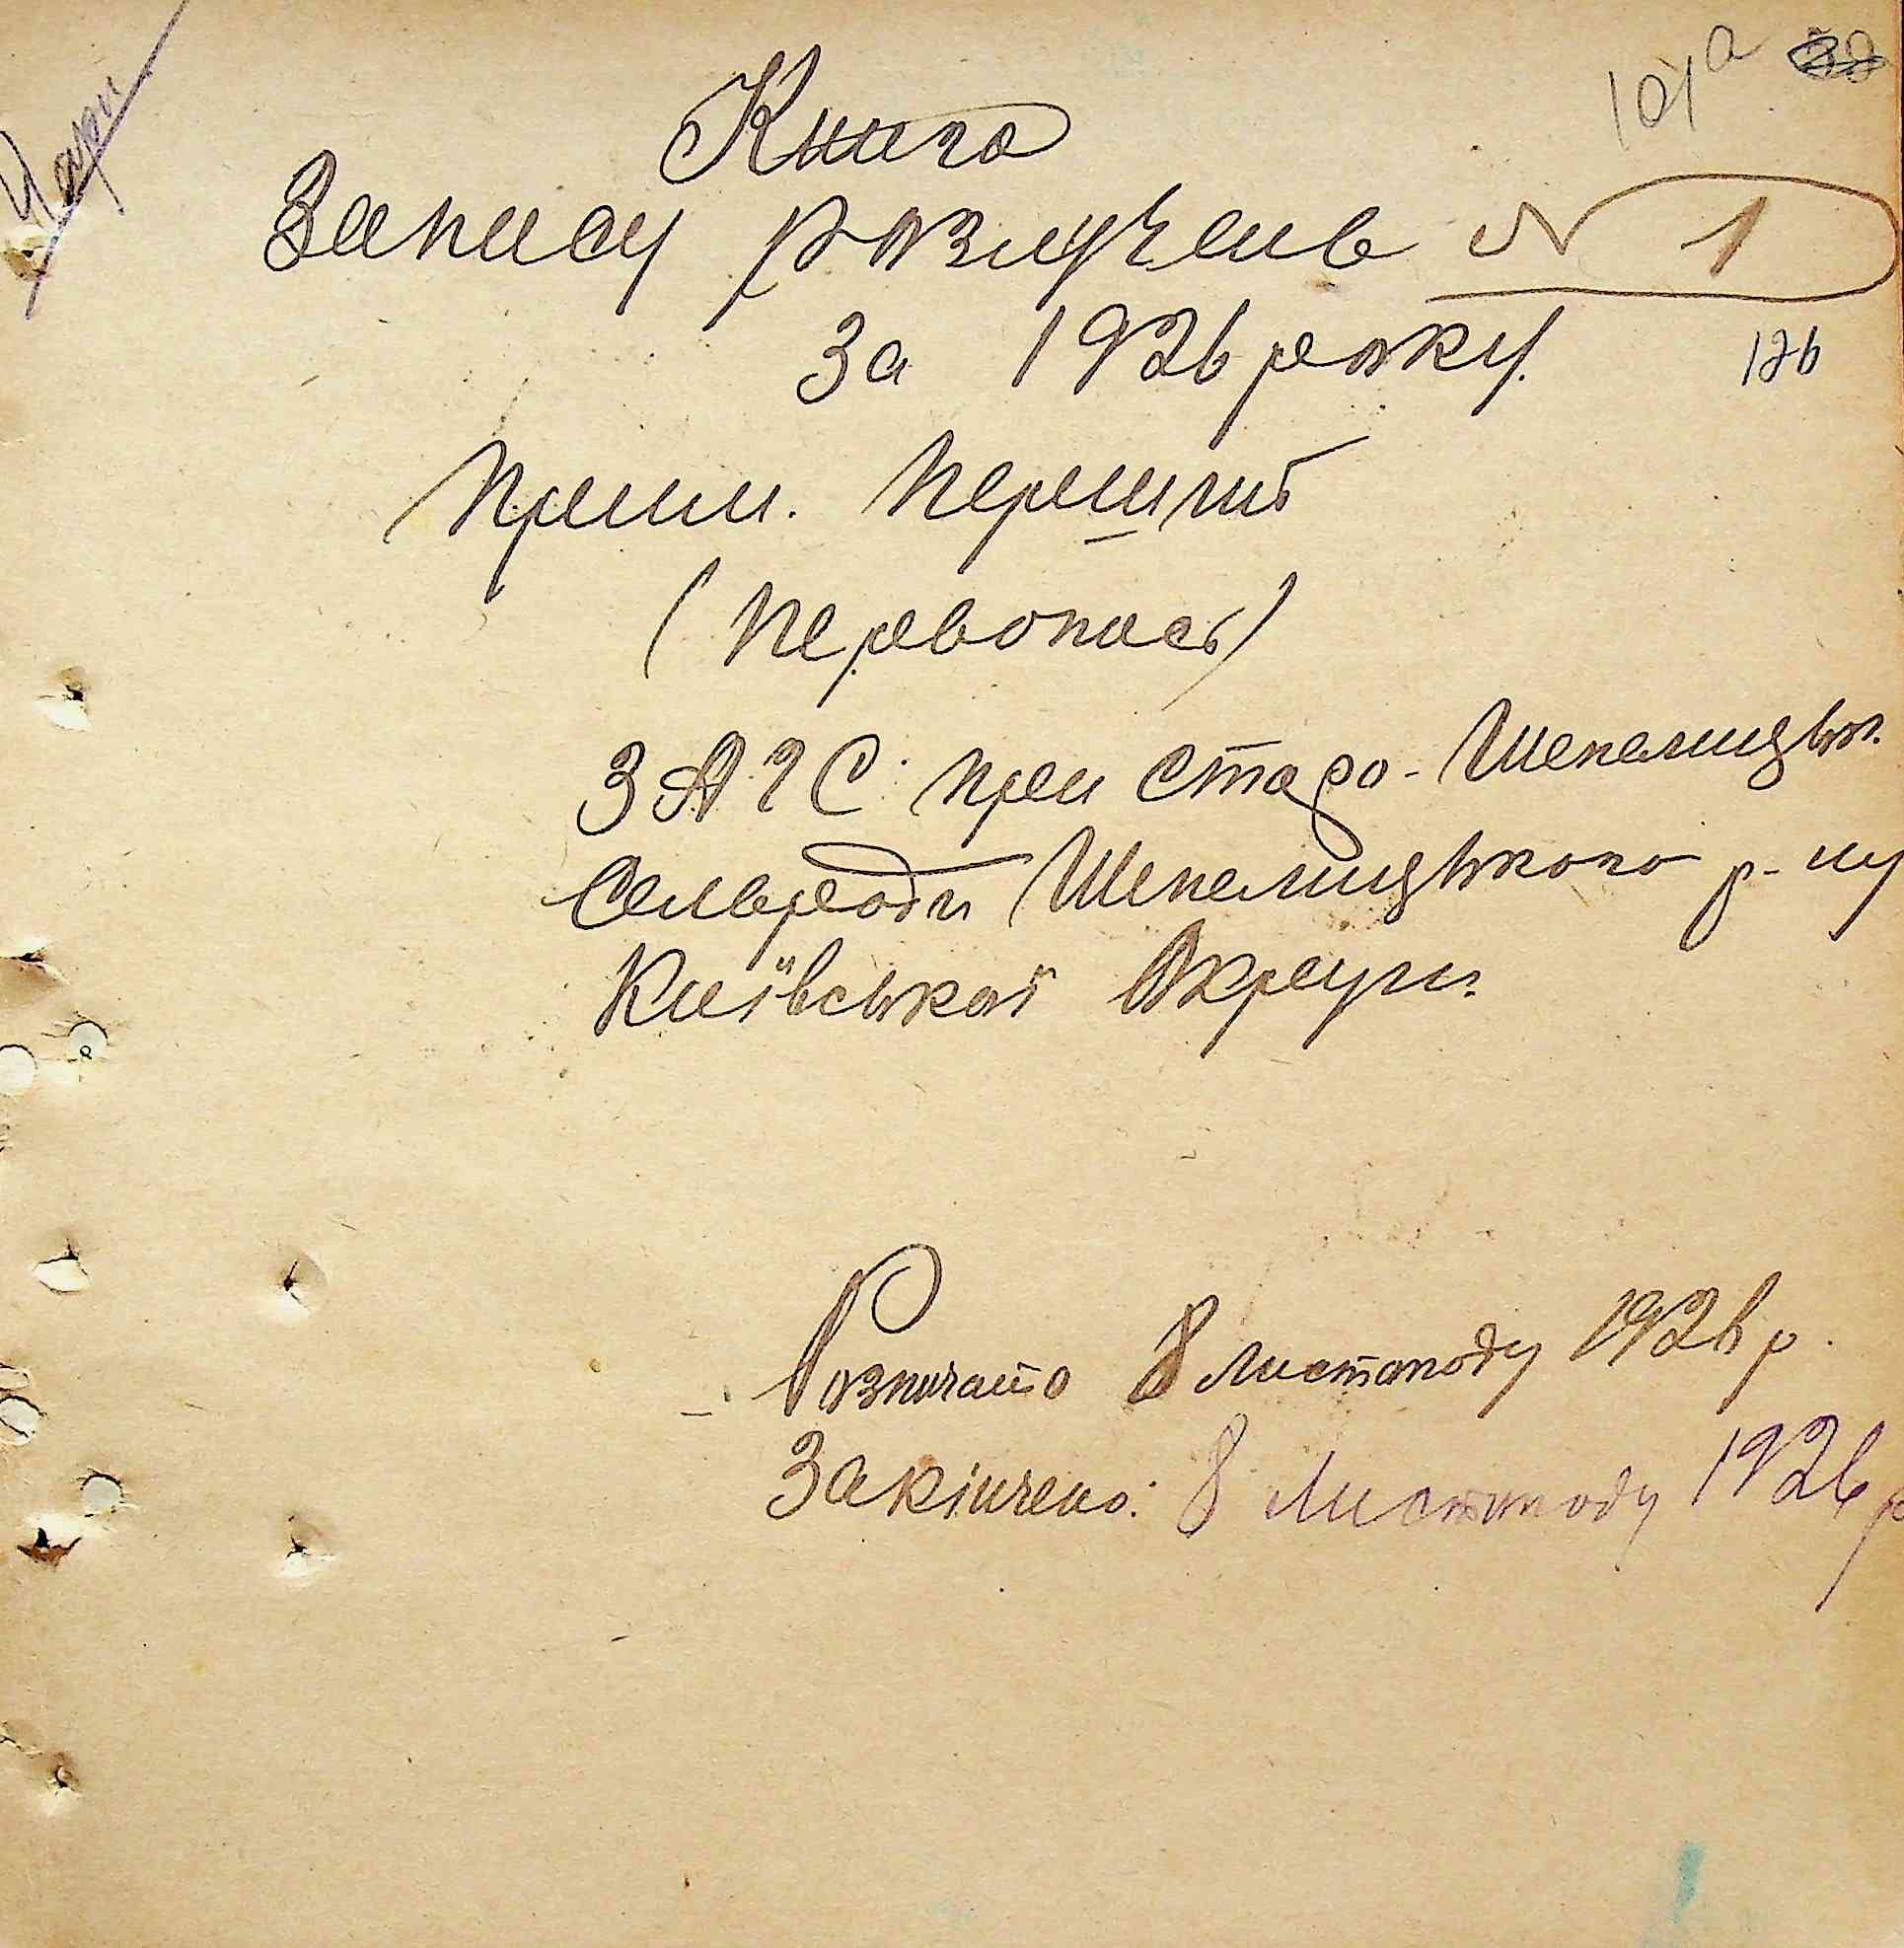 101а
Книга
Запису розлучень № 1
За 1926 року.
126
Прим. Перший
(Первопись)
ЗАГС при Старо-Шепелицьк.
Сельради Шепелицького р-ну
Київської Округи.
Розпочато 8 Листопаду 1926 р.
Закінчено: 8 Листопаду 1926 р